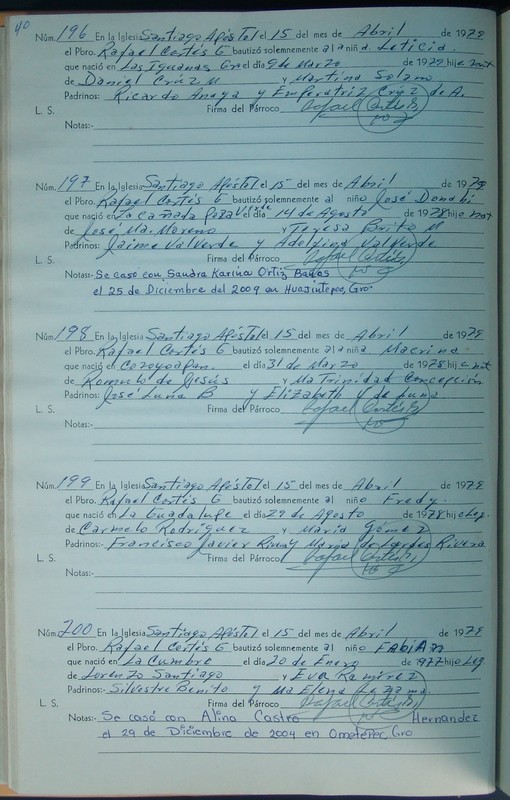 40
Núm. 196 En la Iglesia Santiago Apóstol el 15 del mes de Abril de 1979
el Pbro. Rafael Cortés G bautizó solemnemente al a niña Leticia.
que nació en Las Iguanas Gro el día 9 de Marzo de 1979 hij a nat
de Daniel Cruz M y Martina Solano
Padrinos: Ricardo Anaya y Emperatriz Cruz de A.
L. S. Firma del Párroco Rafael Cortés G
Notas:-
Núm. 197 En la Iglesia Santiago Apóstol el 15 del mes de Abril de 1979
el Pbro. Rafael Cortés G bautizó solemnemente al niño José Donobi
que nació en La Cañada el día 14 de Agosto de 1978 hij o nat
de José Ma. Moreno y Teresa Brito M
Padrinos: Jaime Valverde y Adelfina Valverde
L. S. Firma del Párroco Rafael Cortés G
Notas:- Se casó con Sandra Karina Ortiz Baños
el 25 de Diciembre del 2009 en Huajintepec, Gro.
Núm. 198 En la Iglesia Santiago Apóstol el 15 del mes de Abril de 1979
el Pbro. Rafael Cortés G bautizó solemnemente al a niña Macrina
que nació en Cozoyoapan. el día 31 de Marzo de 1978 hij a nat
de Romulo de Jesús y Ma Trinidad Concepción
Padrinos: José Luna B y Elizabeth V de Luna
L. S. Firma del Párroco Rafael Cortés G
Notas:-
Núm. 199 En la Iglesia Santiago Apóstol el 15 del mes de Abril de 1979
el Pbro. Rafael Cortés G bautizó solemnemente al niño Fredy.
que nació en La Guadalupe el día 29 de Agosto de 1978 hij o leg.
de Carmelo Rodríguez y María Gómez
Padrinos:- Francisco Javier y María de Lourdes Rivera
L. S. Firma del Párroco Rafael Cortés G
Notas:-
Núm. 200 En la Iglesia Santiago Apóstol el 15 del mes de Abril de 1979
el Pbro. Rafael Cortés G bautizó solemnemente al niño Fabián
que nació en La Cumbre el día 20 de Enero de 1977 hij o leg
de Lorenzo Santiago y Eva Ramírez
Padrinos:- Silvestre Benito y Ma Elena Lezama
L. S. Firma del Párroco Rafael Cortés G
Notas:- Se casó con Alina Castro Hernandez
el 29 de Diciembre de 2004 en Ometepec, Gro